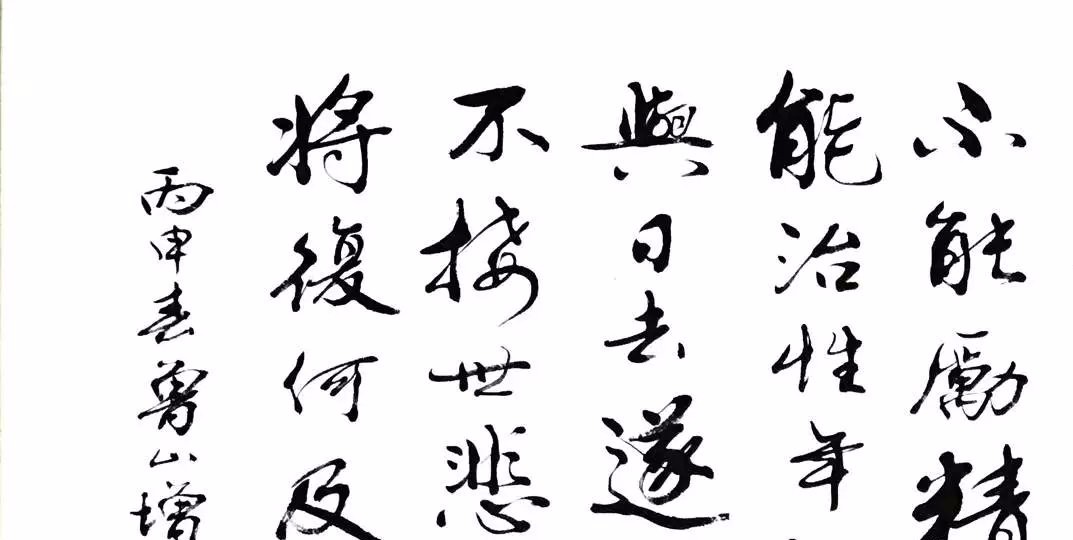 不能勵精
能治性年
與日去遂
不接世悲
将復何及
丙申春魯山增